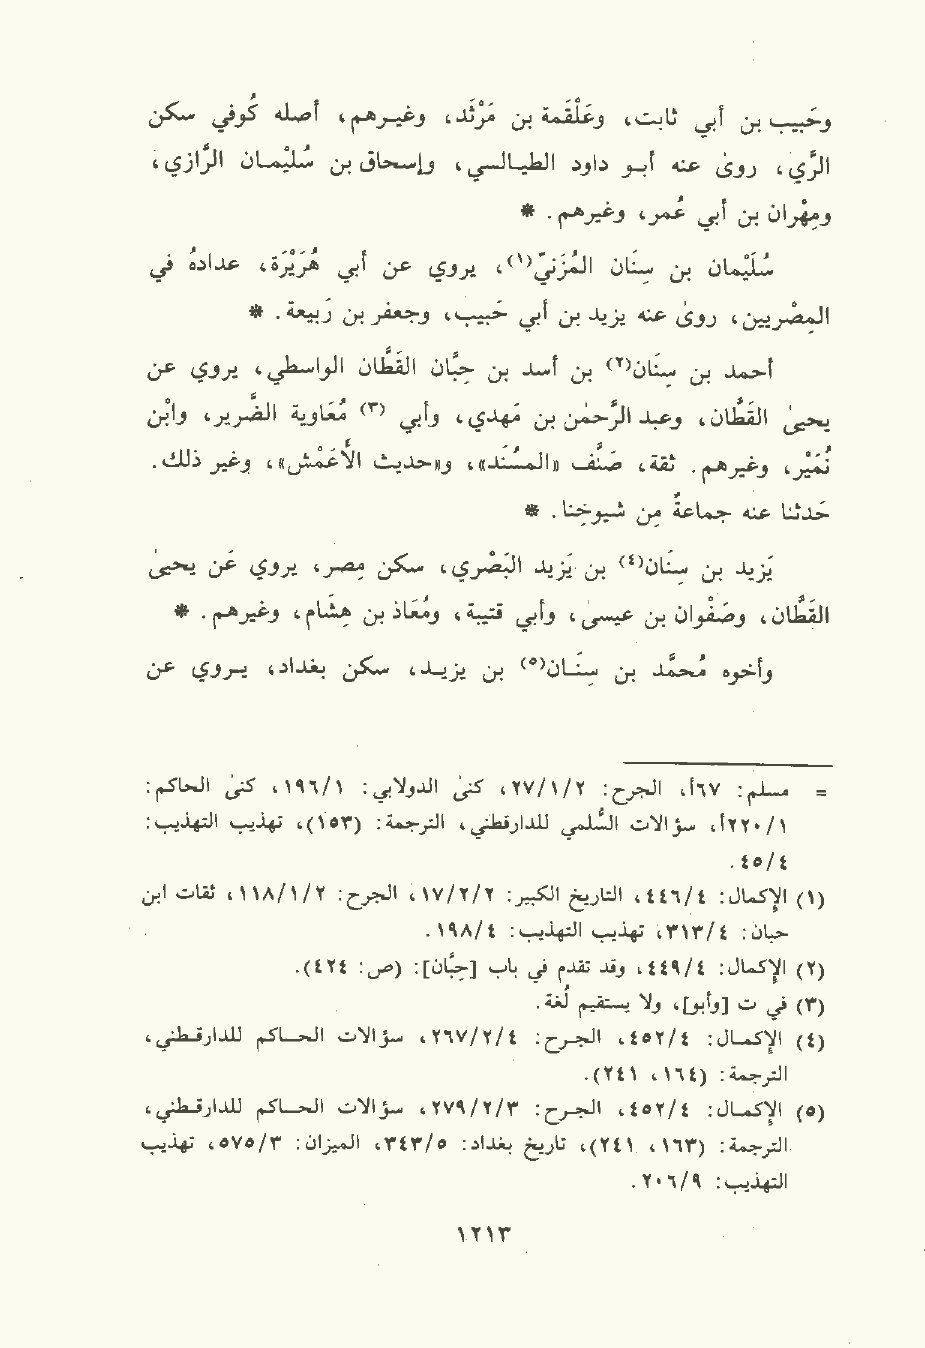 وحَبيب بن أبي ثابت، وعَلْقَمة بن مَرْثَد، وغيرهم، أصله كُوفي سكن
الرَّي، روىٰ عنه أبو داود الطيالسي، وإسحاق بن سُلَيْمان الرَّازي،
ومِهْران بن أبي عُمر، وغيرهم. *
سُلَيْمان بن سِنَان المُزَنيّ(١)، يروي عن أبي هُرَيْرَة، عدادهُ في
المِصْريين، روىٰ عنه يزيد بن أبي حَبيب، وجعفر بن رَبيعة. *
أحمد بن سِنَان(٢) بن أسد بن حِبَّان القَطَّان الواسطي، يروي عن
يحيىٰ القَطَّان، وعبد الرَّحمٰن بن مَهْدي، وأبي (٣) مُعَاوية الضَّرير، وابْن
نُمَيْر، وغيرهم. ثقة، صَنَّف «المُسْنَد»، و«حديث الأَعْمَش»، وغير ذلك.
حَدثنا عنه جماعةٌ مِن شيوخِنا. *
يَزيد بن سِنَان(٤) بن يَزيد البَصْري، سكن مِصر، يروي عَن يحيىٰ
القَطَّان، وصَفْوان بن عيسىٰ، وأبي قتيبة، ومُعَاذ بن هِشَام، وغيرهم. *
وأخوه مُحمَّد بن سِنَان(٥) بن يزيد، سكن بغداد، يروي عن
= مسلم: ٦٧أ، الجرح: ٢/١/٢٧، كنىٰ الدولابي: ١/١٩٦، كنىٰ الحاكم:
١/٢٢٠أ، سؤالات السُّلمي للدارقطني، الترجمة: (١٥٣)، تهذيب التهذيب:
٤/٤٥.
(١) الإِكمال: ٤/٤٤٦، التاريخ الكبير: ٢/٢/١٧، الجرح: ٢/١/١١٨، ثقات ابن
حبان: ٤/٣١٣، تهذيب التهذيب: ٤/١٩٨.
(٢) الإِكمال: ٤/٤٤٩، وقد تقدم في باب [حِبَّان]: (ص: ٤٢٤).
(٣) في ت [وأبو]، ولا يستقيم لُغة.
(٤) الإِكمال: ٤/٤٥٢، الجرح: ٤/٢/٢٦٧، سؤالات الحاكم للدارقطني،
الترجمة: (١٦٤، ٢٤١).
(٥) الإِكمال: ٤/٤٥٢، الجرح: ٣/٢/٢٧٩، سؤالات الحاكم للدارقطني،
الترجمة: (١٦٣، ٢٤١)، تاريخ بغداد: ٥/٣٤٣، الميزان: ٣/٥٧٥، تهذيب
التهذيب: ٩/٢٠٦.
١٢١٣